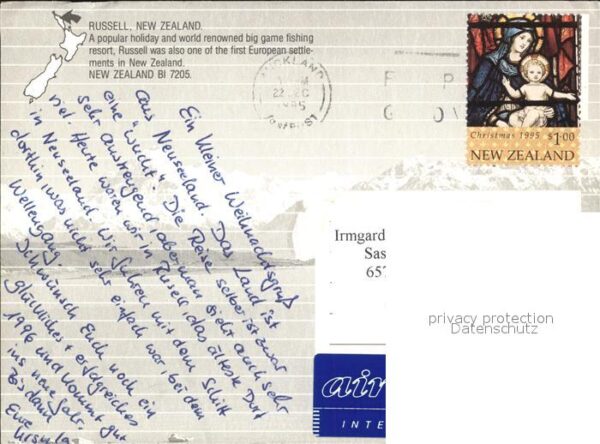 RUSSELL, NEW ZEALAND.
A popular holiday and world renowned big game fishing
resort, Russell was also one of the first European settle-
ments in New Zealand.
NEW ZEALAND BI 7205.
AUCKLAND
1995
Christmas 1995 $1.00
NEW ZEALAND
Ein kleiner Weihnachtsgruß
aus Neuseeland. Das Land ist
eine "Wucht". Die Reise selber ist zwar
sehr anstrengend, aber man sieht auch sehr
viel. Heute waren wir in Rusell, das älteste Dorf
in Neuseeland. Wir fuhren mit dem Schiff
dorthin, was nicht sehr einfach war, bei dem
Wellengang.
Ich wünsch Euch noch ein
glückliches + erfolgreiches
1996 und kommt gut
ins neue Jahr.
Bis dann
Eure
Ursula
Irmgard
Sas
657
privacy protection
Datenschutz
air
INTE